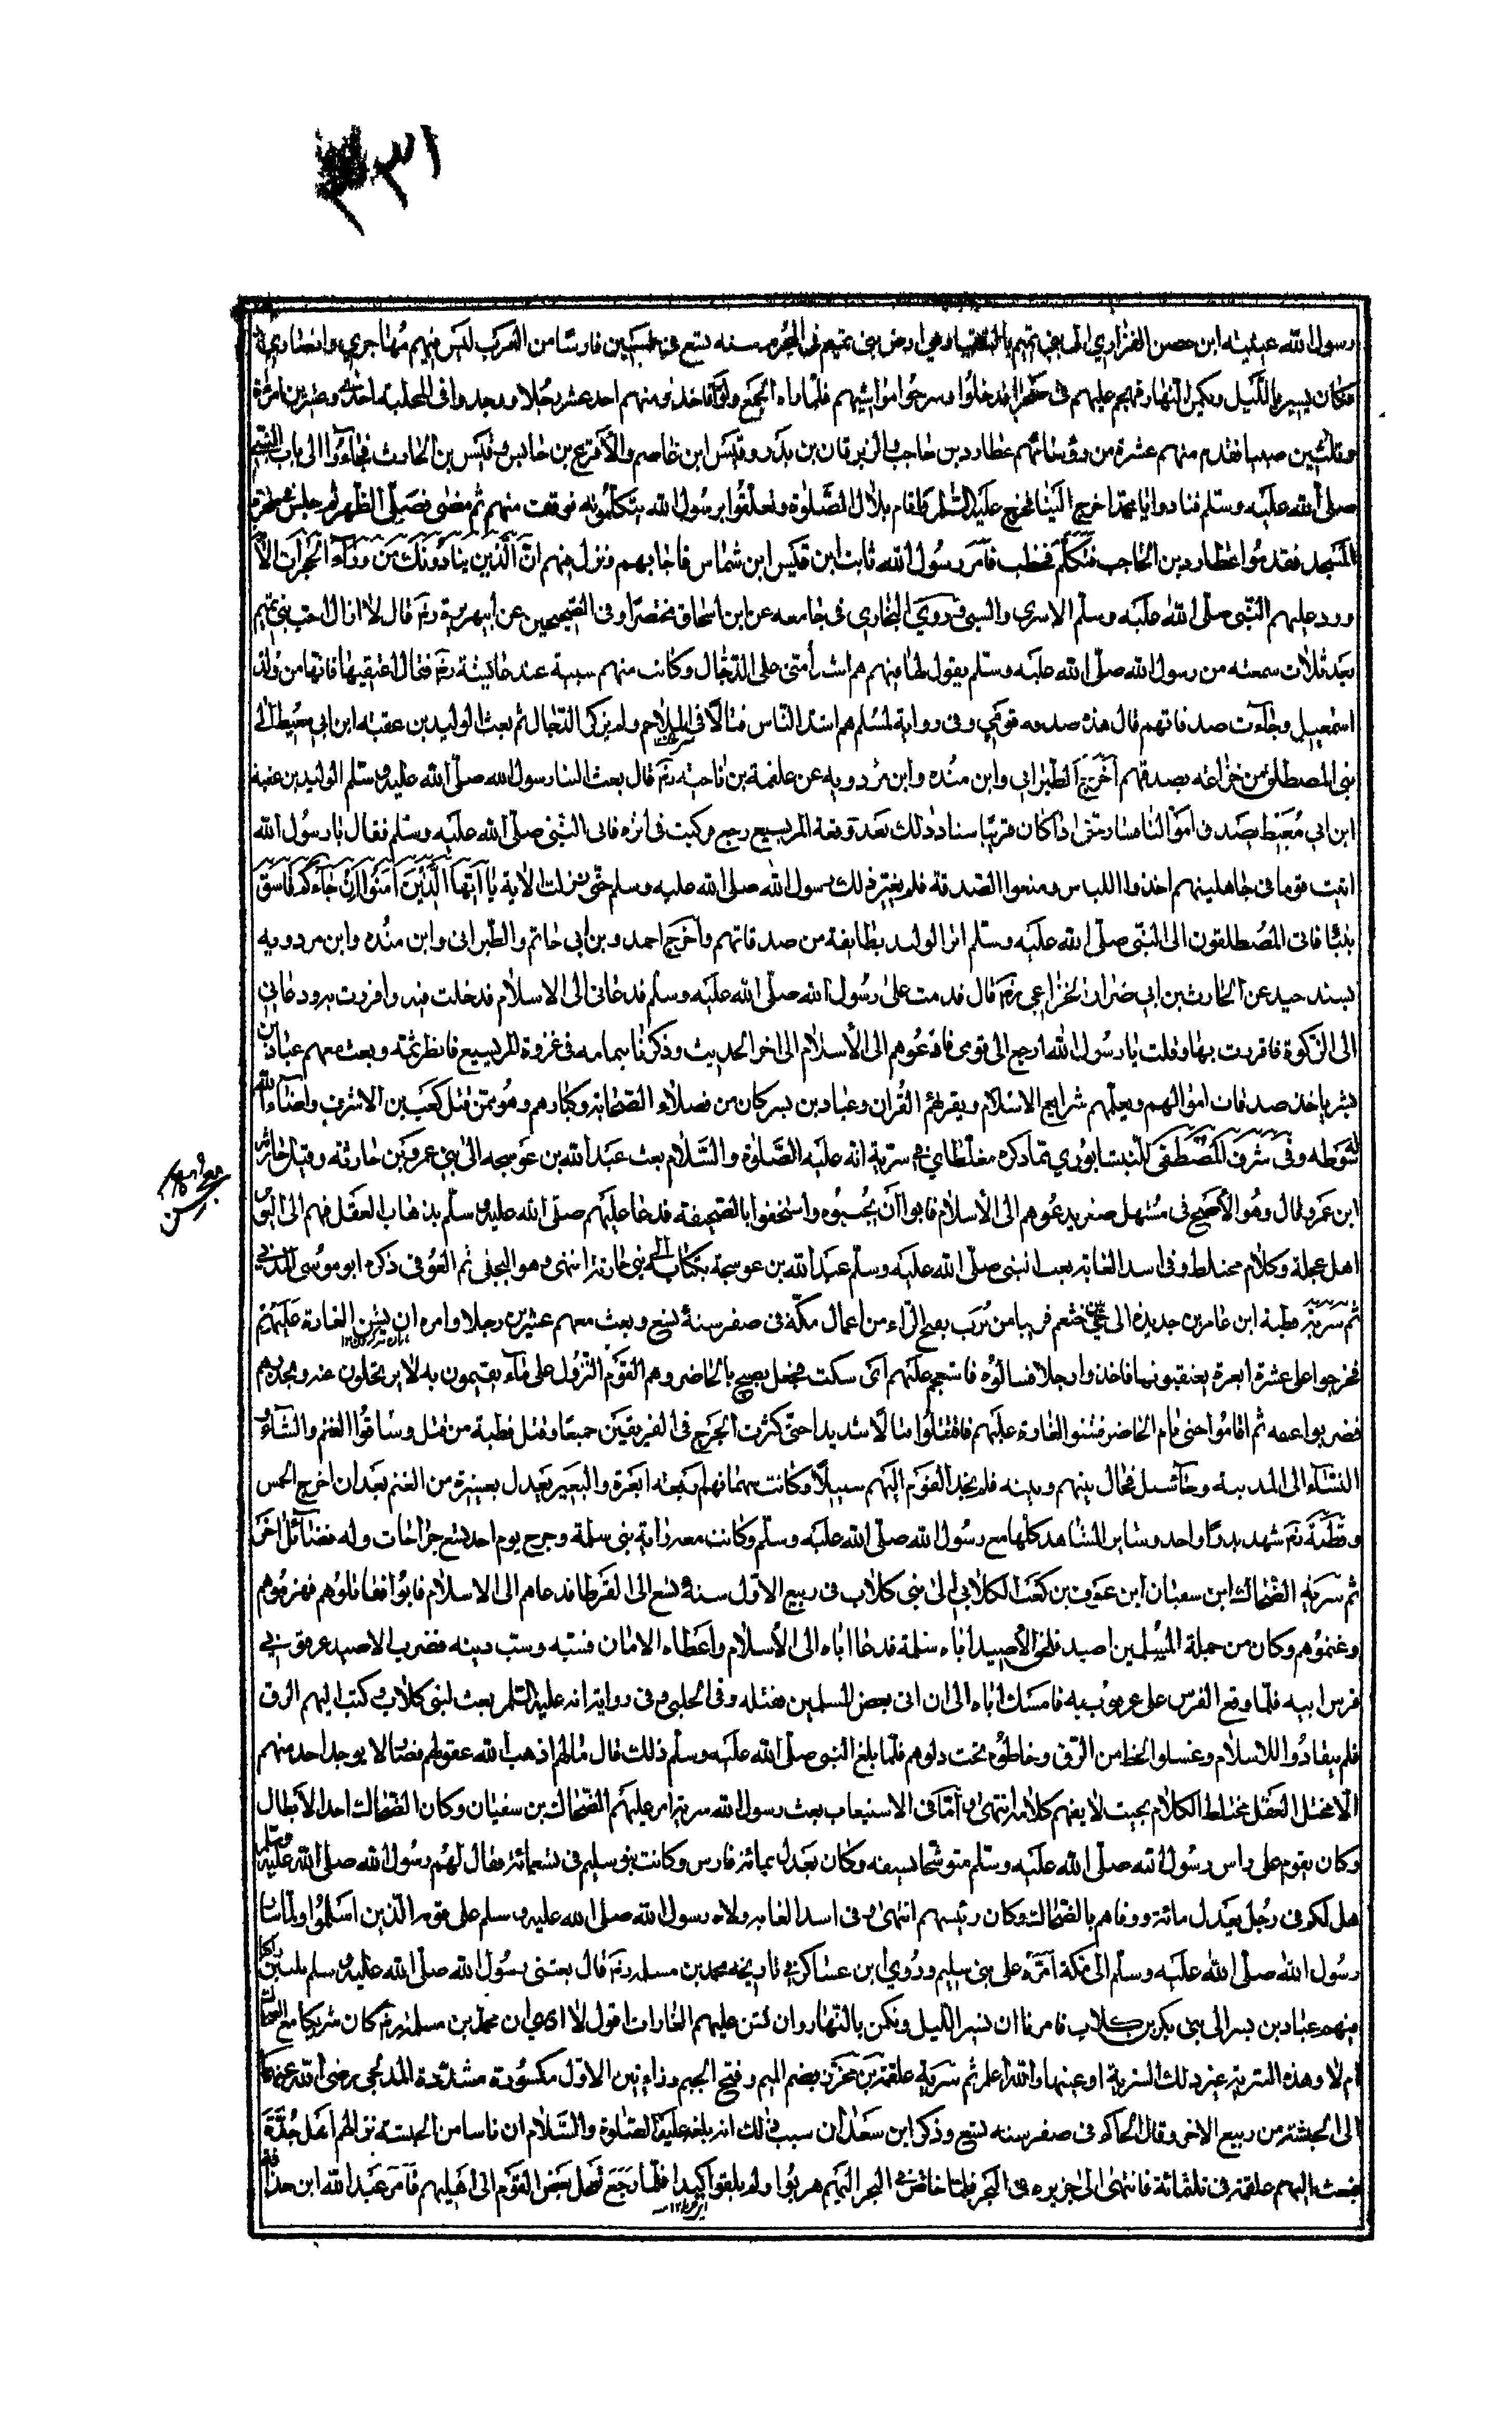 ٣٣١
رسول الله عيينه ابن حصن الفزاري الى بني تميم بالسقيا وهي ارض بني تميم في المحرم سنه تسع في خمسين فارسًا من العرب ليس فيهم مهاجري وانصاري
فكان يسير بالليل ويكمن النهار فهجم عليهم في صحراء فدخلوا وسرحوا مواشيهم فلما راه الجمع ولوا فاخذ منهم احد عشر رجلا ووجدوا في المحلة احد وعشرين امرأة
وثلثين صبيا فقدم منهم عشرة من رؤسائهم عطارد بن حاجب والزبرقان بن بدر وقيس ابن عاصم والاقرع بن حابس وقيس بن الحارث فجاؤا الى باب النبي
صلى الله عليه وسلم فنادوا يا محمد اخرج الينا فخرج عليه السلام فاقام بلال الصلوة وتعلقوا برسول الله يتكلمونه فوقف منهم ثم مضى فصلى الظهر ثم جلس في صحن
المسجد فقدموا عطارد بن الحاجب فتكلم فخطب فأمر رسول الله ثابت ابن قيس ابن شماس فاجابهم ونزل فيهم ان الذين ينادونك من وراء الحجرات الآ
ورد عليهم النبي صلى الله عليه وسلم الاسرى والسبي وروى البخاري في جامعه عن ابن اسحاق مختصرا وفي الصحيحين عن ابي هريرة رض قال لا ازال احب بني تميم
بعد ثلاث سمعته من رسول الله صلى الله عليه وسلم يقول لها فيهم هم اشد أمتي على الدجال وكانت منهم سبية عند عائشة رض فقال اعتقيها فانها من ولد
اسمعيل وجاءت صدقاتهم قال هذه صدقه قومي وفي رواية لمسلم هم اشد الناس قتالا في الملاحم ولم يذكر الدجال ثم بعث الوليد بن عقبه ابن ابي معيط الى
بني المصطلق من خزاعه بصدقهم أخرج الطبراني وابن منده وابن مردويه عن علقمة بن ناجيه رض قال بعث الينا رسول الله صلى الله عليه وسلم الوليد بن عقبة
ابن ابي معيط يصدق اموالنا فسار حتى اذا كان قريبا منا وذلك بعد وقعة المريسيع رجع فركبت في اثره فاتى النبي صلى الله عليه وسلم فقال يا رسول الله
اتيت قوما في جاهليتهم اخذوا اللباس ومنعوا الصدقة فلم يغير ذلك رسول الله صلى الله عليه وسلم حتى نزلت الاية يا ايها الذين امنوا ان جاءكم فاسق
بنبأ فاتى المصطلقون الى النبي صلى الله عليه وسلم اثر الوليد بطايفة من صدقاتهم وأخرج احمد وبن ابي حاتم والطبراني وابن منده وابن مردويه
بسند جيد عن الحارث بن ابي ضرار الخزاعي رض قال قدمت على رسول الله صلى الله عليه وسلم فدعاني الى الاسلام فدخلت فيه واقررت به ودعاني
الى الزكوة فاقررت بها وقلت يا رسول الله ارجع الى قومي فادعوهم الى الأسلام الى اخر الحديث وذكرنا بتمامه في غزوة المريسيع فانظر ثمه وبعث معهم عباد بن
بشر ياخذ صدقات اموالهم ويعلمهم شرايع الاسلام ويقرئهم القرآن وعباد بن بشر كان من فضلاء الصحابة وكبارهم وهو ممن قتل كعب بن الاشرف واضاءا لله
سوطه وفي شرف المصطفى للنيشابوري مما ذكره مغلطاي في سرية انه عليه الصلوة والسلام بعث عبد الله بن عوسجه الى بني عمرو بن حارثه وقيل حارثه
ابن عمرو قال وهو الأصح في مستهل صفر يدعوهم الى الأسلام فابوا ان يجيبوه واستخفوا بالصحيفه فدعا عليهم صلى الله عليه وسلم بذهاب العقل فهم الى اليوم
اهل عجلة وكلام مختلط وفي اسد الغابة بعث النبي صلى الله عليه وسلم عبد الله بن عوسجة بكتابه الى بني حارثة انتهى وهو البجلي ثم العرفي ذكره ابو موسى المديني
ثم سرية قطبة ابن عامر بن حديدة الى خثعم قريبا من تربة بفتح الراء من اعمال مكة في صفر سنة تسع وبعث معهم عشرين رجلا وامره ان يشن الغارة عليهم
فخرجوا على عشرة ابعرة يعتقبونها فاخذوا رجلا فسالوه فاستعجم عليهم اى سكت فجعل يصيح بالحاضر وهم القوم النزول على ماء يقيمون به لا يرتحلون عنه ويحذرهم
فضربوا عنقه ثم اقاموا حتى نام الحاضر فشنوا الغارة عليهم فاقتتلوا قتالا شديدا حتى كثرت الجرح في الفريقين جميعا وقتل قطبة من قتل وساقوا الغنم والشاء و
النساء الى المدينه وجاء سيل فحال بينهم وبينه فلم يجد القوم اليهم سبيلا وكانت سهمانهم اربعه ابعرة والبعير يعدل بعشرة من الغنم بعد ان اخرج الخمس
وقطبة رض شهد بدرا واحد وساير المشاهد كلها مع رسول الله صلى الله عليه وسلم وكانت معه راية بني سلمة وجرح يوم احد تسع جراحات وله فضائل اخر
ثم سرية الضحاك ابن سفيان ابن عوف بن كعب الكلابي الى بني كلاب في ربيع الاول سنة تسع الى القرطا فدعاهم الى الاسلام فابوا فقاتلوهم فهزموهم
وغنموهم وكان من جملة المسلمين اصيد فلقى الأصيد اباه سلمة فدعا اباه الى الأسلام واعطاه الامان فسبه وسب دينه فضرب الاصيد عرقوبي
فرس ابيه فلما وقع الفرس على عرقوبيه فامسك اباه الى ان اتى بعض المسلمين فقتله وفي الحلبي وفي رواية انه عليه السلم بعث لبني كلاب وكتب اليهم الرق
فلم ينقادوا للاسلام وغسلوا الخط من الرق وخاطوه تحت دلوهم فلما بلغ النبي صلى الله عليه وسلم ذلك قال مالهم اذهب الله عقولهم فصار لا يوجد احد منهم
الا مختل العقل مختلط الكلام بحيث لا يفهم كلامه انتهى أما في الاستيعاب بعث رسول الله سرية امر عليهم الضحاك بن سفيان وكان الضحاك احد الأبطال
وكان يقوم على راس رسول الله صلى الله عليه وسلم متوشحا بسيفه وكان يعدل بمائة فارس وكانت بنو سليم في تسعمائة فقال لهم رسول الله صلى الله عليه وسلم
هل لكم في رجل يعدل مائة ووفاهم بالضحاك وكان رئيسهم انتهى و في اسد الغابه ولاه رسول الله صلى الله عليه وسلم على قومه الذين اسلموا ولما سار
رسول الله صلى الله عليه وسلم الى مكة امره على بني سليم وروى ابن عساكر في تاريخه محمد بن مسلمه رض قال بعثني رسول الله صلى الله عليه وسلم ثلثين راكبا
فيهم عباد بن بشر الى بني بكر بن كلاب فامرنا ان نسير الليل ونكمن بالنهار وان نشن عليهم الغارات اقول لا ادري ان محمد بن مسلمة رض كان شريكا مع الضحاك
ام لا وهذه السرية غير ذلك السرية او عينها والله اعلم ثم سرية علقمة بن مجزز بضم الميم وفتح الجيم وزاءين الاول مكسورة مشددة المدلجي رضي الله عنهما
الى الحبشة من ربيع الاخر وقال الحاكم في صفر سنه تسع وذكر ابن سعد ان سبب ذلك انه بلغه عليه الصلوة والسلام ان ناسا من الحبشة تراهم اهل جدة
فبعث اليهم علقمة في ثلثمائة فانتهى الى جزيره في البحر فلما خاض في البحر اليهم هربوا ولم يلقوا كيدا فلما رجع تعجل بعض القوم الى اهليهم فأمر عبد الله ابن حذافه